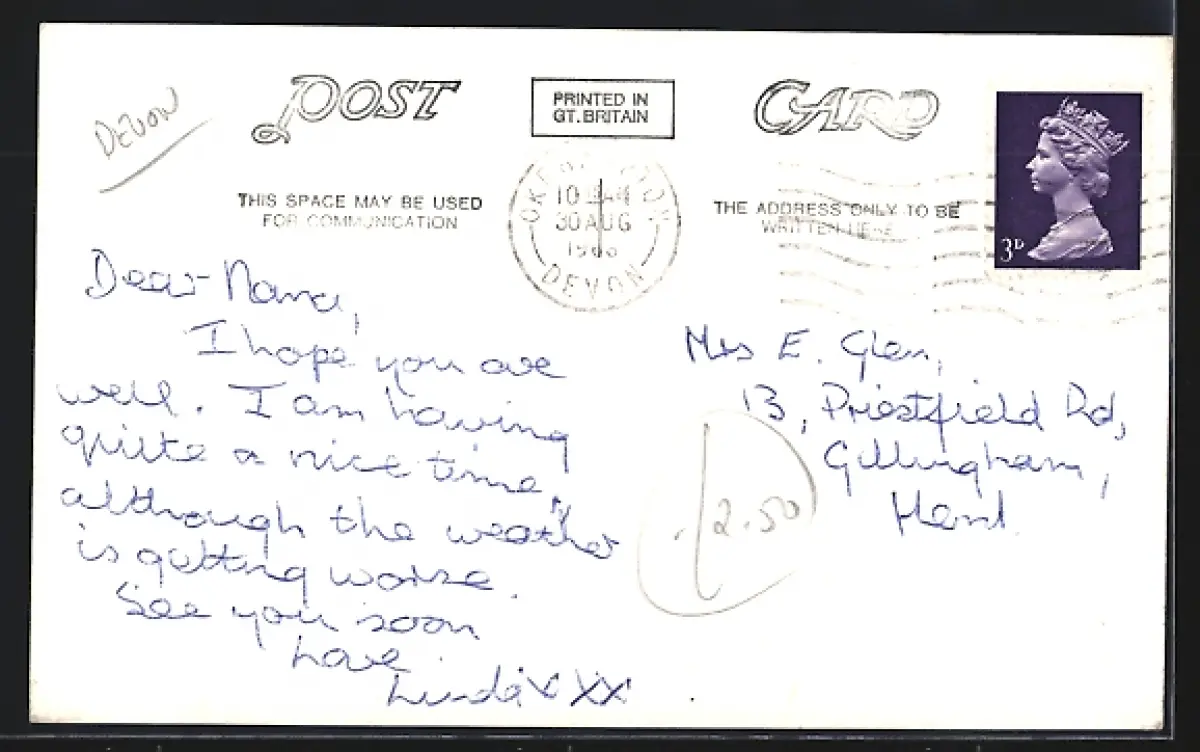 DEVON
POST
PRINTED IN
GT. BRITAIN
CARD
THIS SPACE MAY BE USED
FOR COMMUNICATION
THE ADDRESS ONLY TO BE
WRITTEN HERE
30 AUG
DEVON
3D
Dear Nana,
I hope you are
well. I am having
quite a nice time,
although the weather
is getting worse.
See you soon
Love
Linda XXX
Mrs E. Glen,
13, Priestfield Rd,
Gillingham,
Kent.
2.50